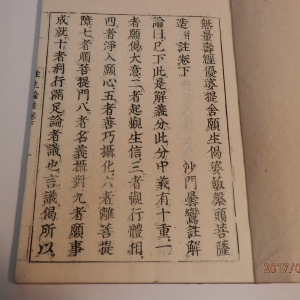 無量壽經優婆提舍願生偈婆藪槃頭菩薩
造并註卷下
沙門曇鸞註解
論曰已下此是解義分此分中義有十重一
者願偈大意二者起觀生信三者觀行體相
四者淨入願心五者善巧攝化六者離菩提
障七者順菩提門八者名義攝對九者願事
成就十者利行滿足論者議也言議偈所以
2017/0